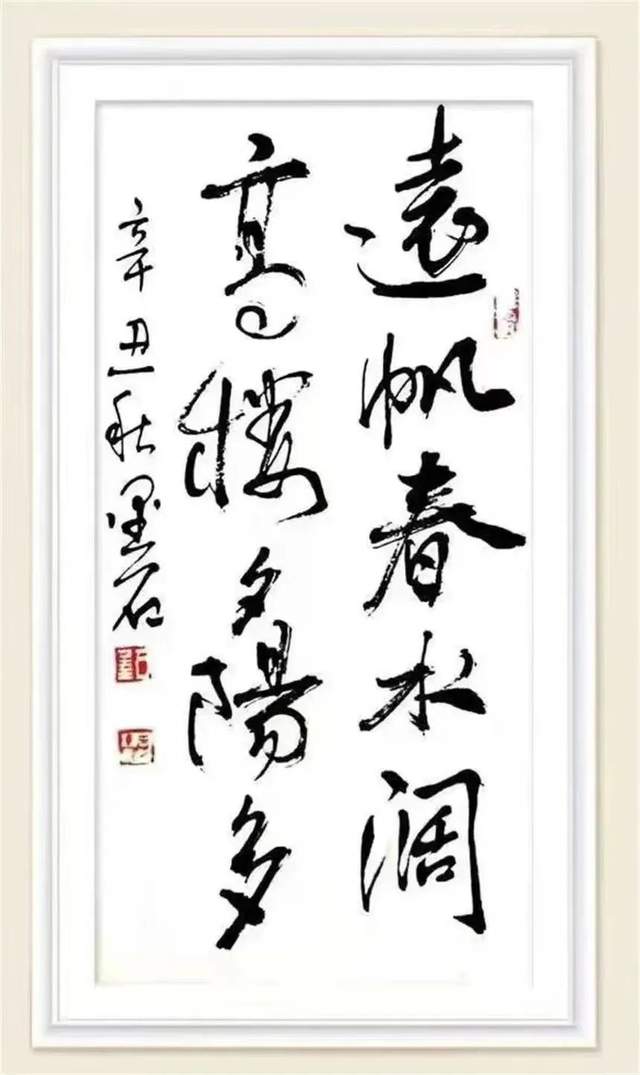 遠帆春水阔
高楼夕陽多
辛丑秋墨石